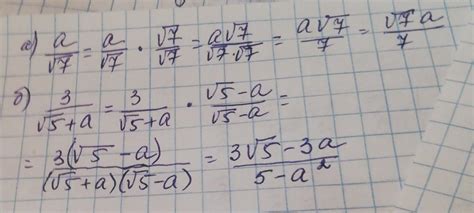 а) a/√7 = a/√7 · √7/√7 = a√7/√7·√7 = a√7/7 = √7a/7
б) 3/√5+a = 3/√5+a · √5-a/√5-a =
= 3(√5-a)/(√5+a)(√5-a) = 3√5-3a/5-a²